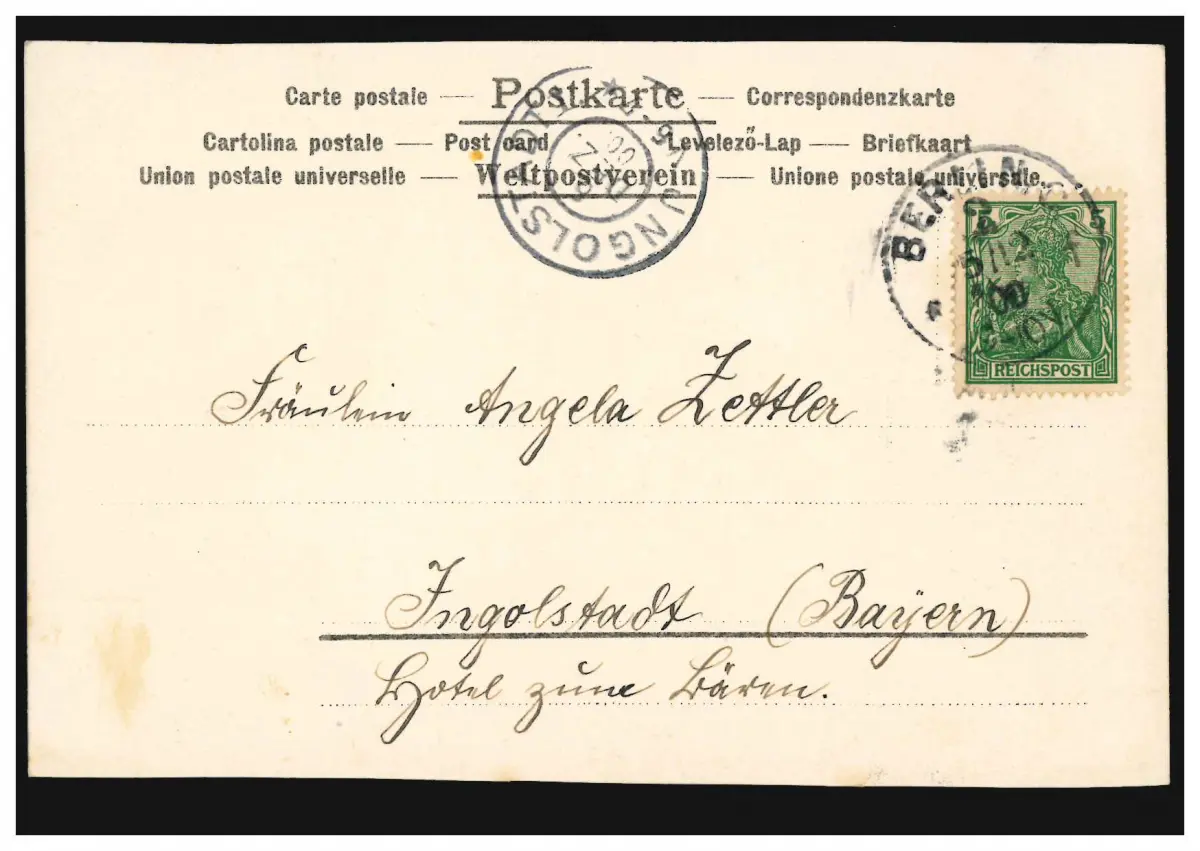 Carte postale — Postkarte — Correspondenzkarte
Cartolina postale — Post card — Levelező-Lap — Briefkaart
Union postale universelle — Weltpostverein — Unione postale universale.
INGOLSTADT
5 5
REICHSPOST
00
Fräulein Angela Zettler
Ingolstadt (Bayern)
Hotel zum Bären.